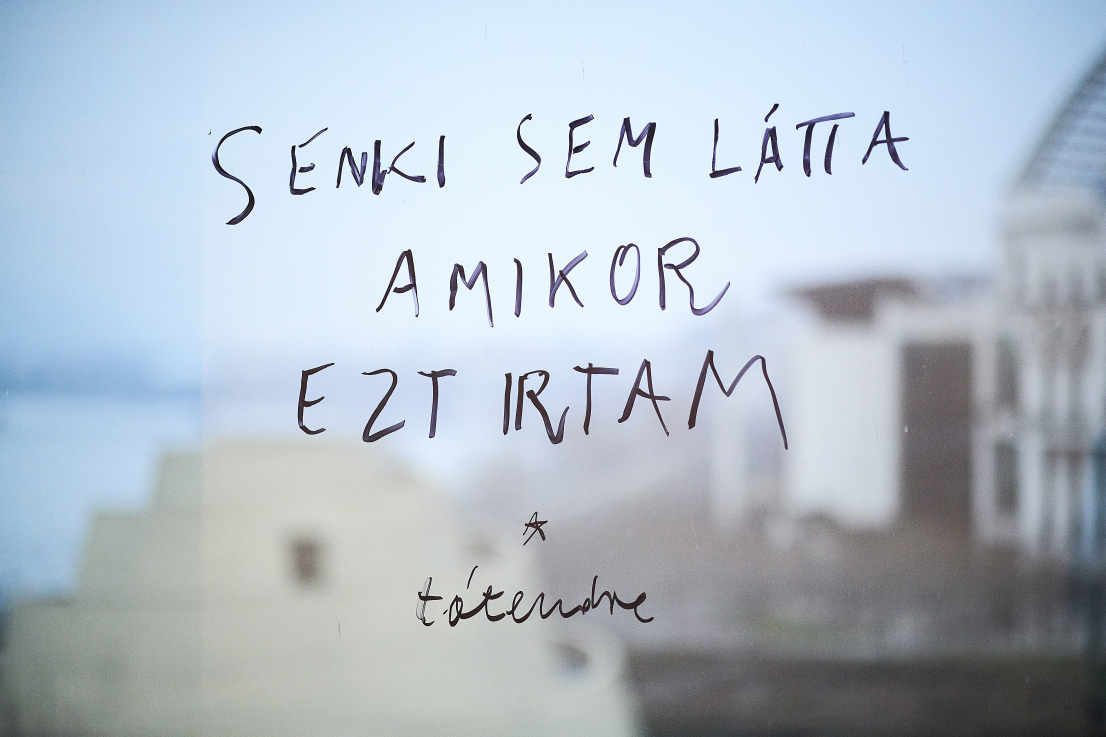 SENKI SEM LÁTTA
AMIKOR
EZT IRTAM
*
tótendre